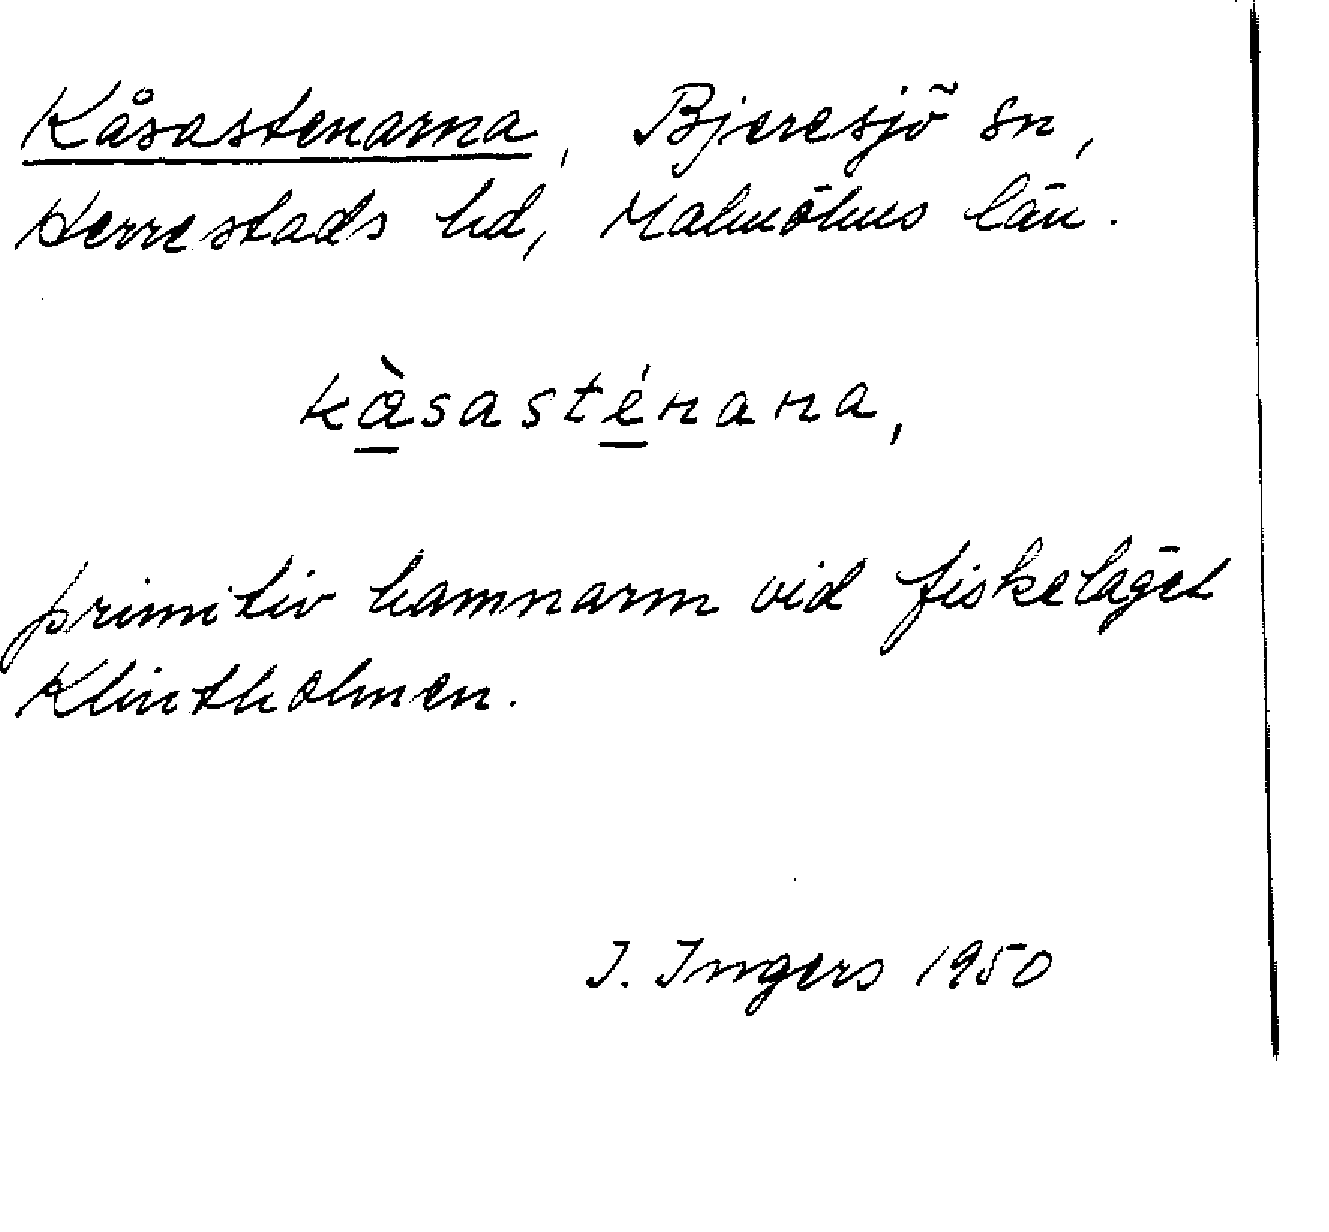 Kåsastenarna, Bjeresjö sn,
Herrestads hd, Malmöhus län.
kàsasténana,
primitiv hamnarm vid fiskeläget
Klintholmen.
I. Ingers 1950